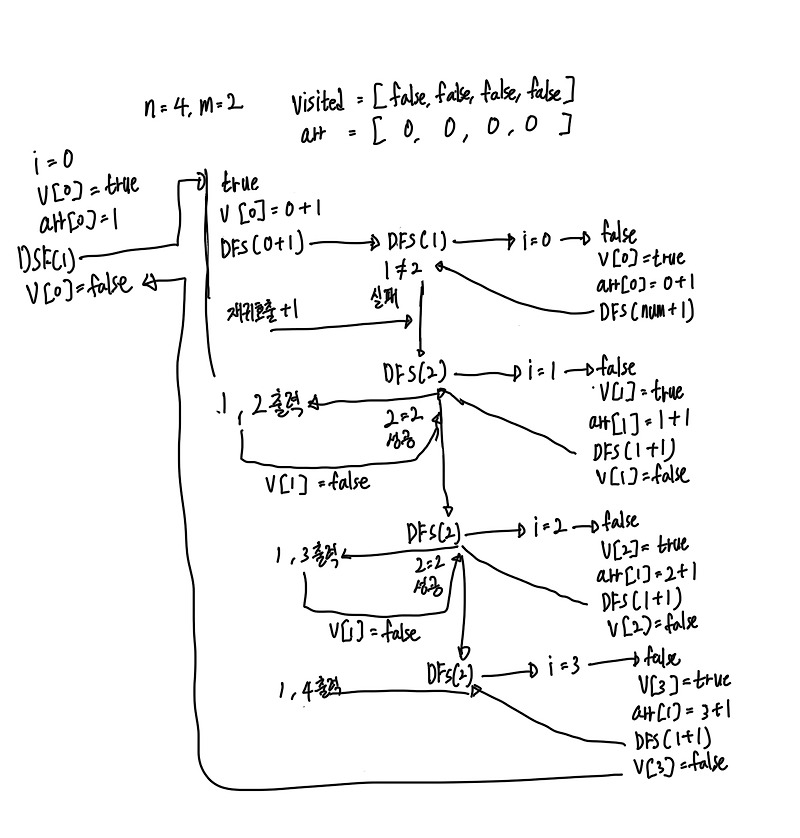 n=4, m=2
Visited = [false, false, false, false]
arr = [ 0, 0, 0, 0 ]
i=0
V[0]=true
arr[0]=1
DSF(1)
V[0]=false
true
V[0]=0+1
DFS(0+1)
DFS(1)
1≠2
실패
i=0
false
V[0]=true
arr[0]=0+1
DFS(num+1)
재귀호출+1
DFS(2)
i=1
false
V[1]=true
arr[1]=1+1
DFS(1+1)
V[1]=false
1, 2출력
2=2
성공
V[1]=false
DFS(2)
i=2
false
V[2]=true
arr[1]=2+1
DFS(1+1)
V[2]=false
1, 3출력
2=2
성공
V[1]=false
DFS(2)
i=3
false
V[3]=true
arr[1]=3+1
DFS(1+1)
V[3]=false
1, 4출력